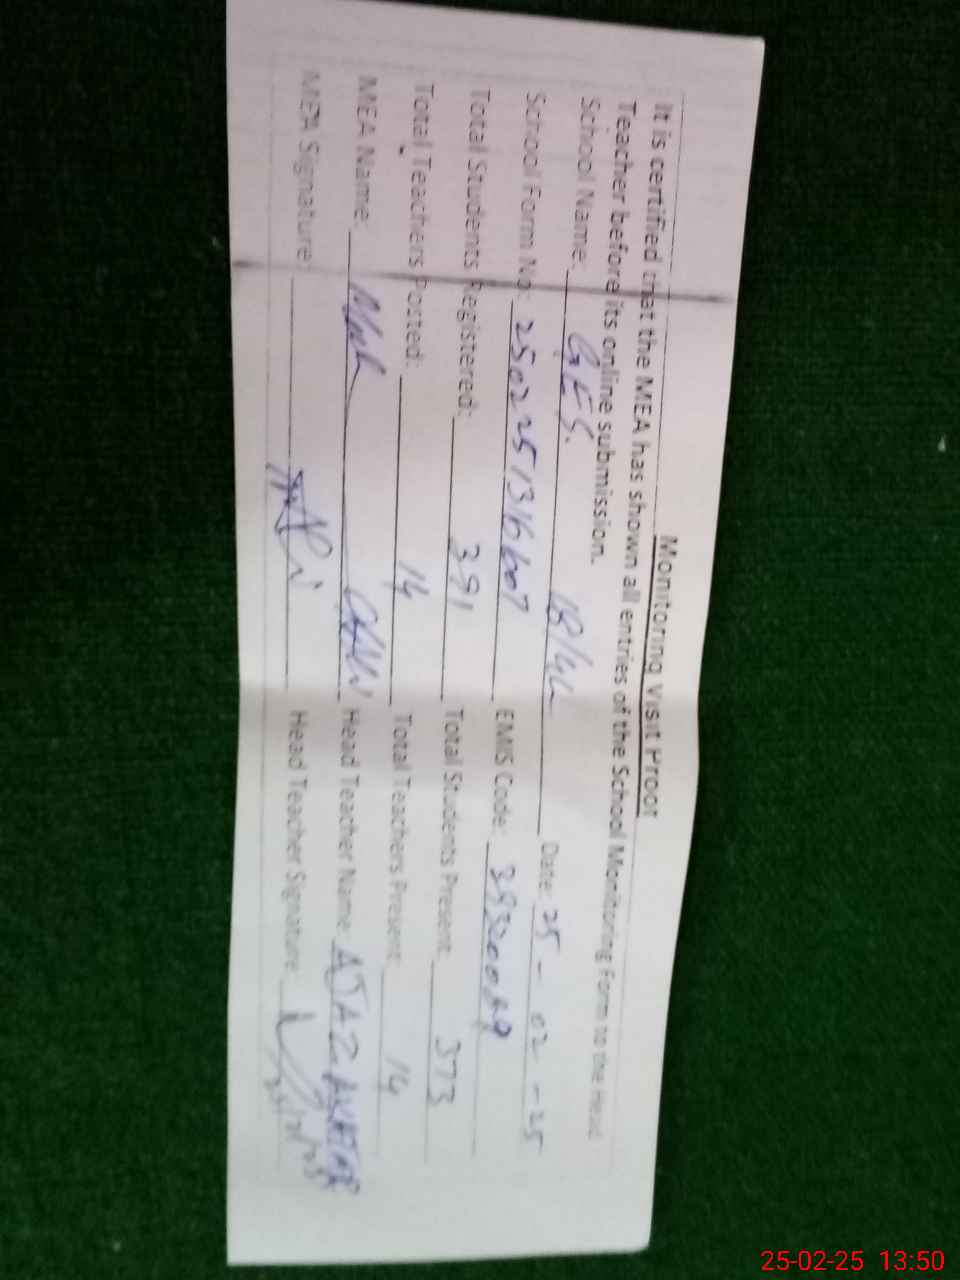 Monitoring Visit Proof
It is certified that the MEA has shown all entries of the School Monitoring Form to the Head
Teacher before its online submission.
School Name: GES. 18/4L Date: 25-02-25
School Form No: 2502251316607 EMIS Code:
Total Students Registered: 391 Total Students Present: 373
Total Teachers Posted: 14 Total Teachers Present: 14
MEA Name: Head Teacher Name: AJAZ AKHTAR
MEA Signature: Head Teacher Signature:
25-02-25 13:50